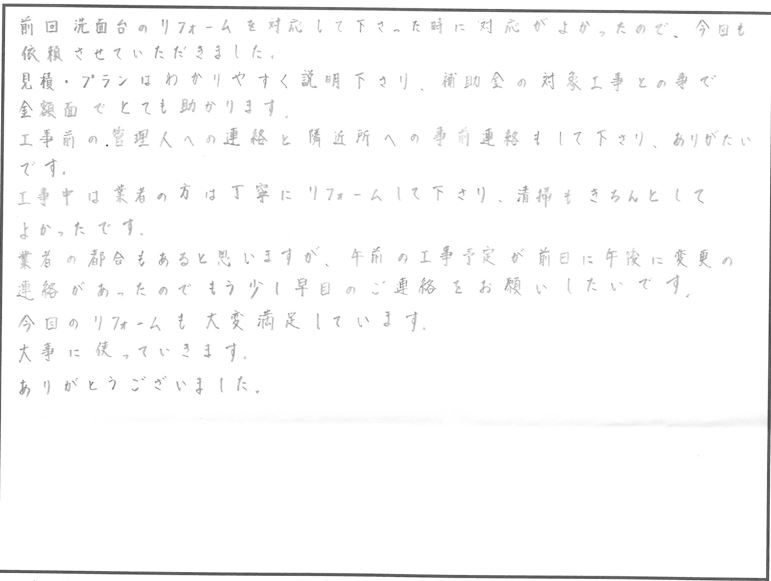 前回洗面台のリフォームを対応して下さった時に対応がよかったので、今回も
依頼させていただきました。
見積・プランはわかりやすく説明下さり、補助金の対象工事との事で
金額面でとても助かります。
工事前の管理人への連絡と隣近所への事前連絡もして下さり、ありがたい
です。
工事中は業者の方は丁寧にリフォームして下さり、清掃もきちんとして
よかったです。
業者の都合もあると思いますが、午前の工事予定が前日に午後に変更の
連絡があったのでもう少し早目のご連絡をお願いしたいです。
今回のリフォームも大変満足しています。
大事に使っていきます。
ありがとうございました。